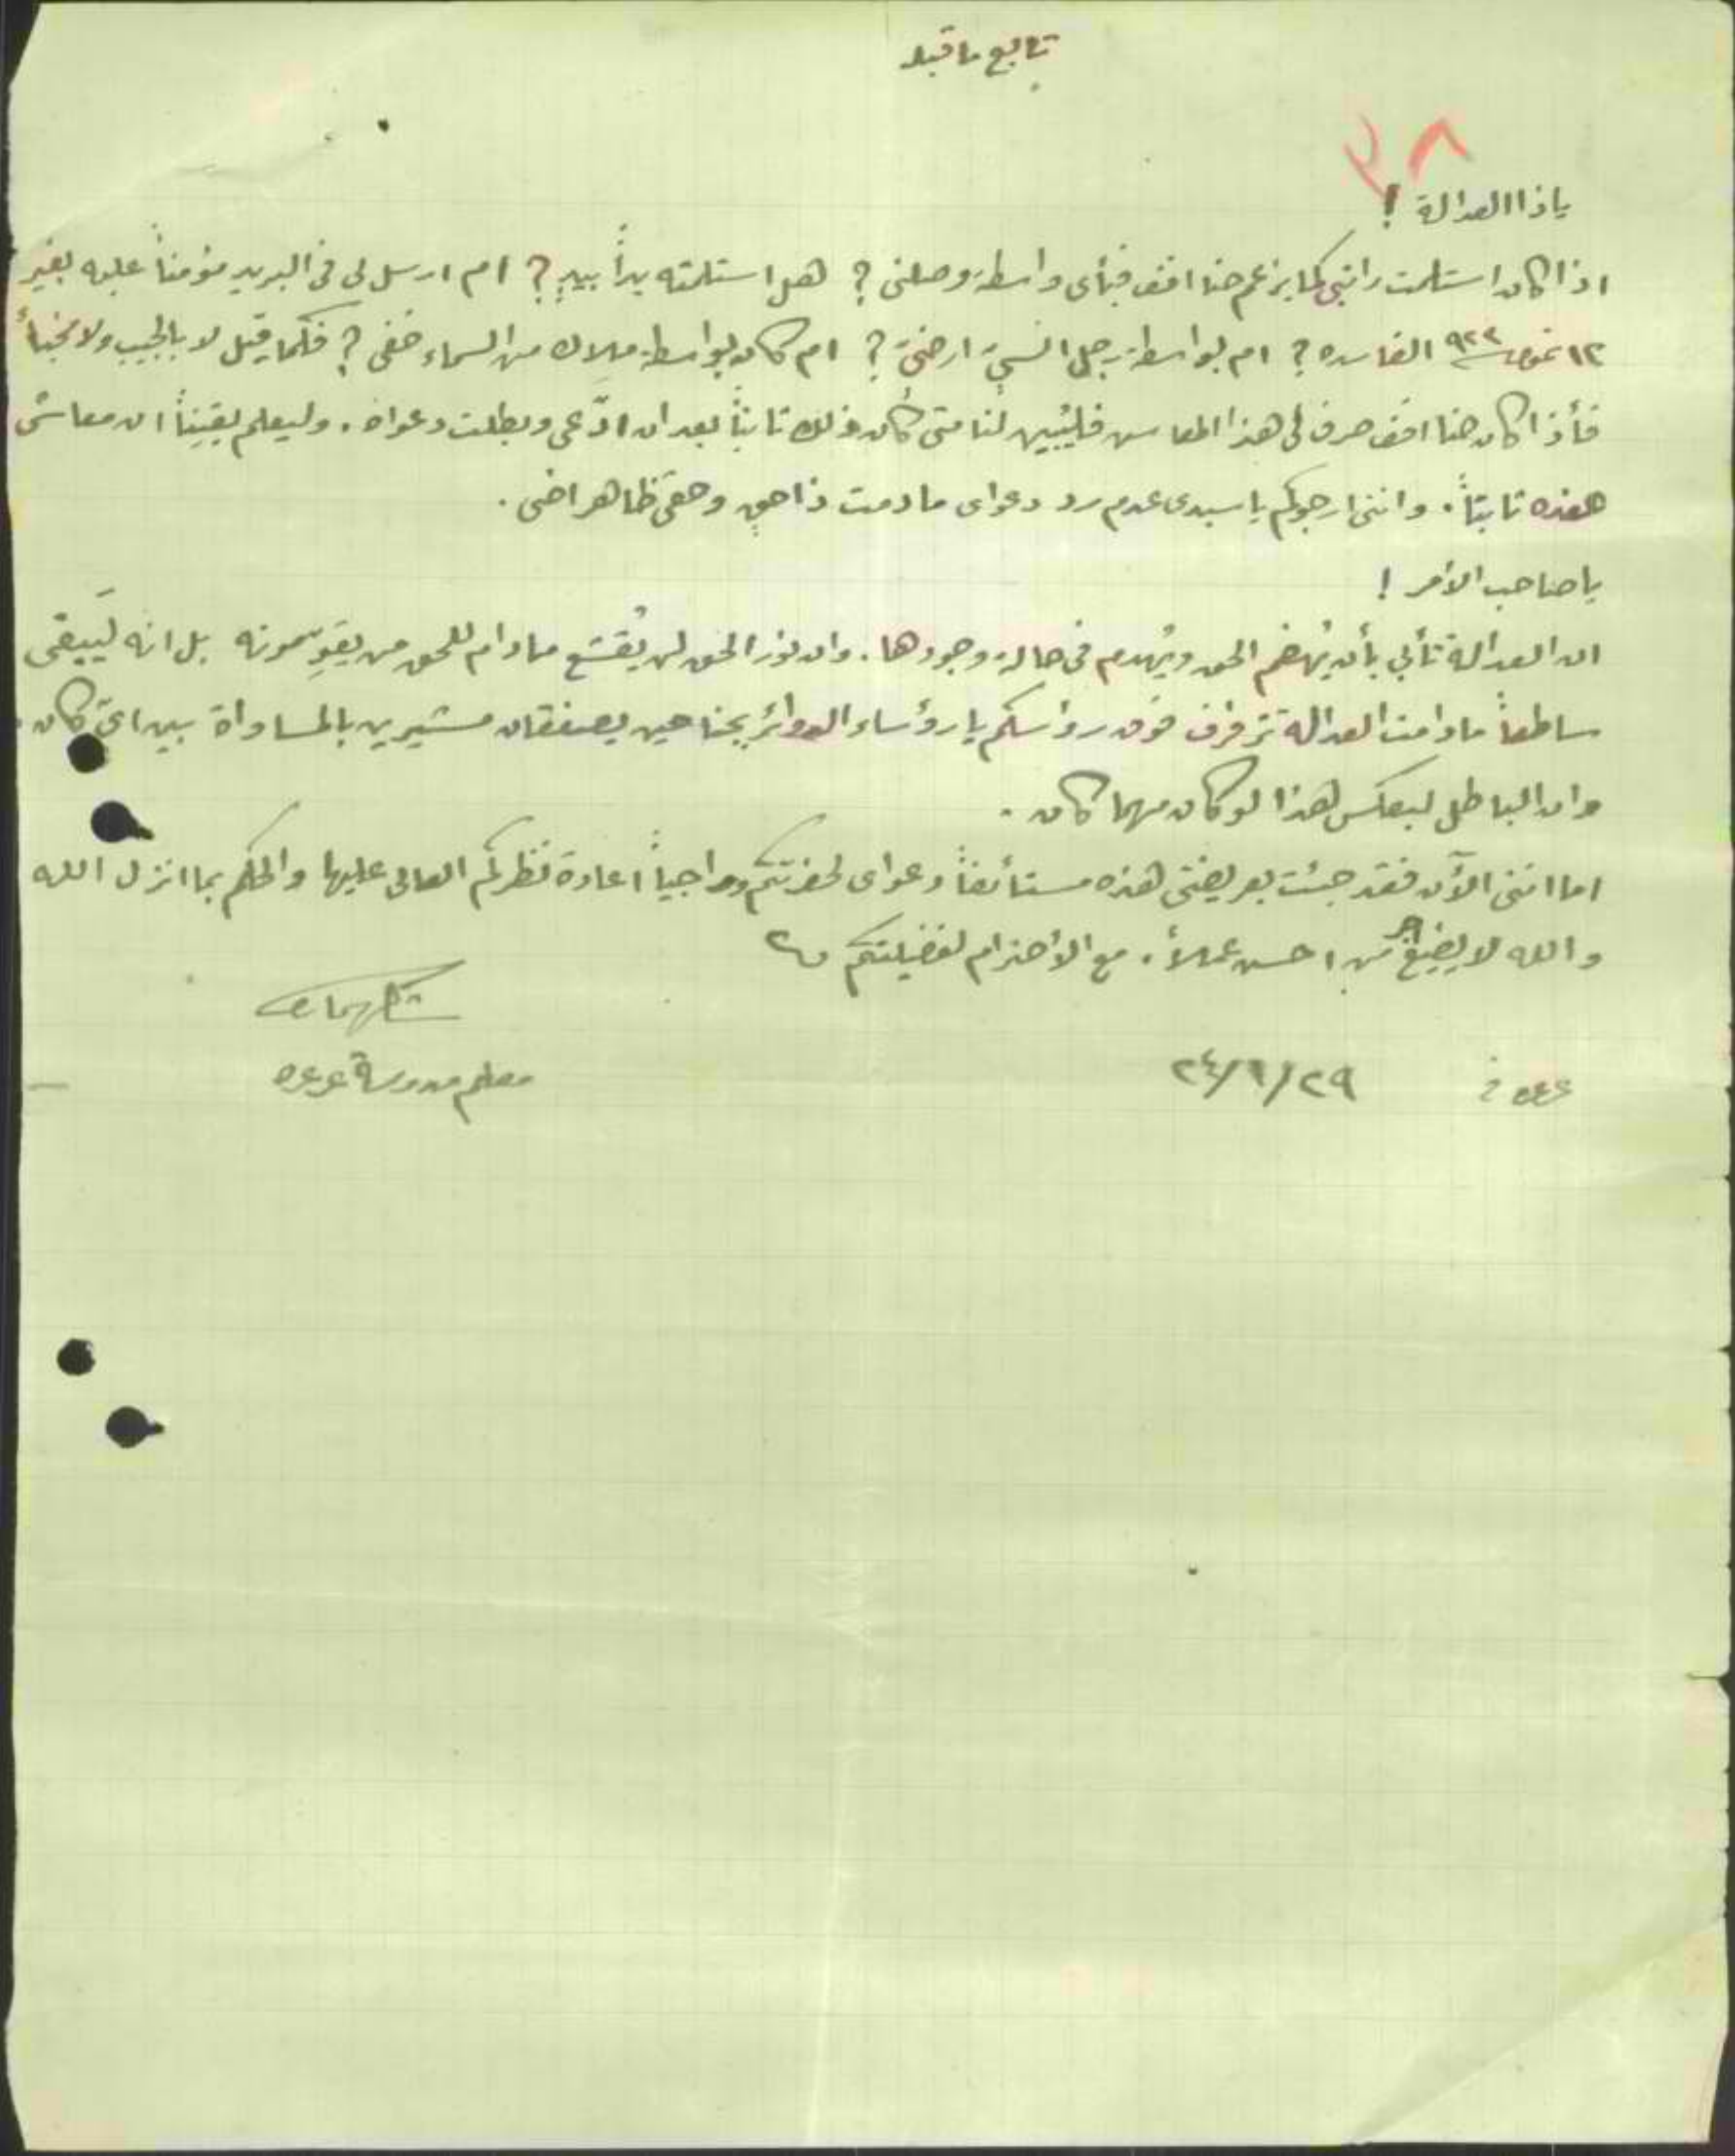 تابع ما قبله
٣٨
ياذا العدالة !
اذا كان استلمت راتبي كما يزعم حنا افف فبأى واسطة وصلنى ? هل استلمته يداً بيدٍ ? ام ارسل لى فى البريد مؤمناً عليه بغير
١٢ تموز سنة ٩٢٢ الفاسده ? ام بواسطة رجل انسيّ ارضيّ ? ام كان بواسطة ملاك من السماء خفى ? فكما قيل لا بالجيب ولا مخبأ
فأذا كان حنا افف صرف لى هذا المعاش فليُبين لنا متى كان ذلك ثابتاً بعد ان ادّعى وبطلت دعواه . وليعلم يقيناً ان معاشى
هذه ثابتاً . واننى ارجوكم يا سيدى عدم رد دعواى ما دمت ذا حقٍ وحقى ظاهر اضى .
يا صاحب الأمر !
ان العدالة تأبى بأن يُهضم الحق ويُهدم فى حالة وجودها . وان نور الحق لن يُقشع ما دام للحق من يقوِّمونه بل انه لَيبقى
ساطعاً ما دامت العدالة ترفرف فوق رؤسكم يا رؤساء الدوائر بجناحين يصفقان مشيرين بالمساواة بين اىّ كان .
وان الباطل لبعكس هذا لو كان مهما كان .
اما اننى الآن فقد جئت بعريضتى هذه مستأنفاً دعواى لحضرتكم وراجياً اعادة نظركم العالى عليها والحكم بما انزل الله
والله لا يضيع اجر من احسن عملاً . مع الأحترام لفضيلتكم
عرعره فى ٢٤/٦/٢٩
معلم مدرسة عرعره